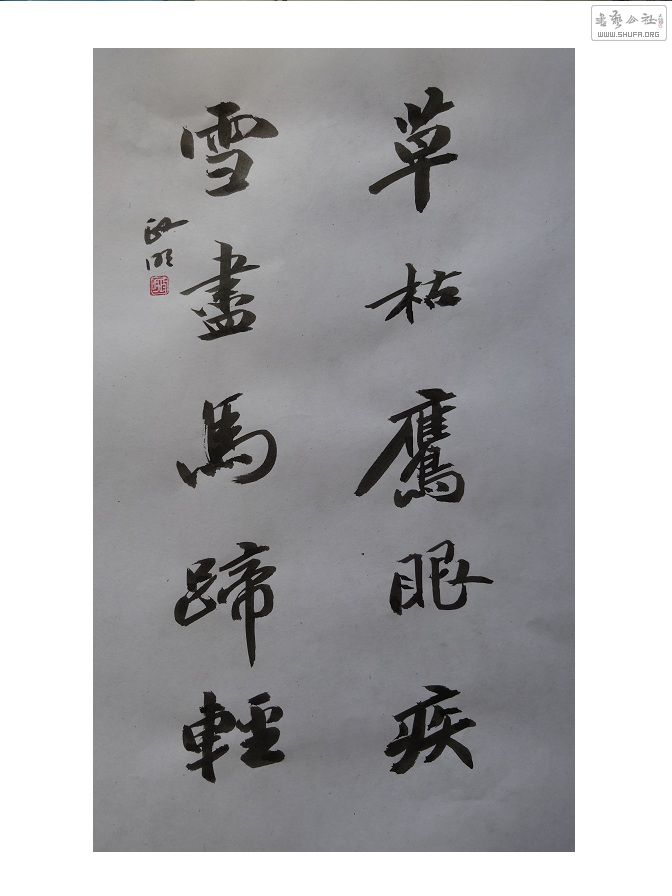 草枯鷹眼疾
雪盡馬蹄輕
WWW.SHUFA.ORG